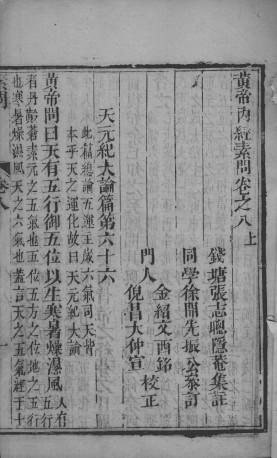 黃帝內經素問卷之八上
錢塘張志聰隱菴集註
同學徐開先振公參訂
門人
金紹文西銘
倪昌大仲宣
校正
天元紀大論篇第六十六
此篇總論五運主歲六氣司天皆
本乎天之運化故曰天元紀大論
黃帝問曰天有五行御五位以生寒暑燥濕風
人有五行
有丹黅蒼素元之五氣也五位五方之位地之五行
也寒暑燥濕風天之六氣也蓋言天之五氣經于十
卷八